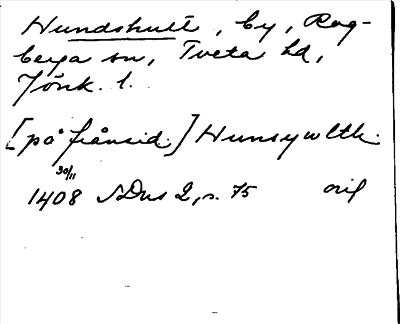 Hundshult, by, Rog-
berga sn, Tveta hd,
Jönk. l.
[på frånsid.] Hunsywltk.
30/11
1408 SDns 2, s. 75 orig